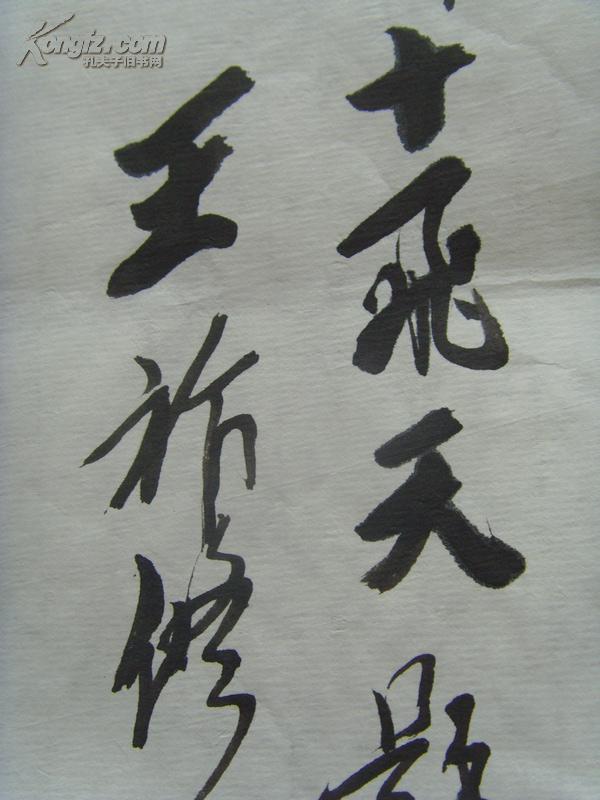 Kongfz.com
孔夫子旧书网
十飛天 题
王祚修